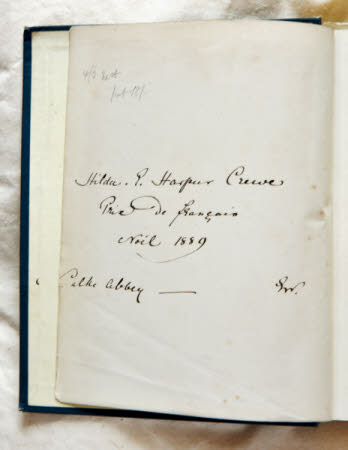 Hilda. E. Harpur Crewe
Prix de français
Noël 1889
Calke Abbey —